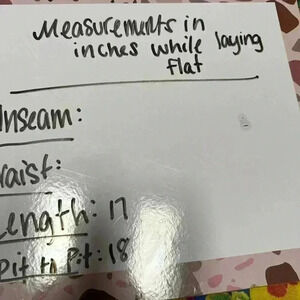 Measurements in
inches while laying
flat
Inseam:
waist:
Length: 17
Pit to Pit: 18